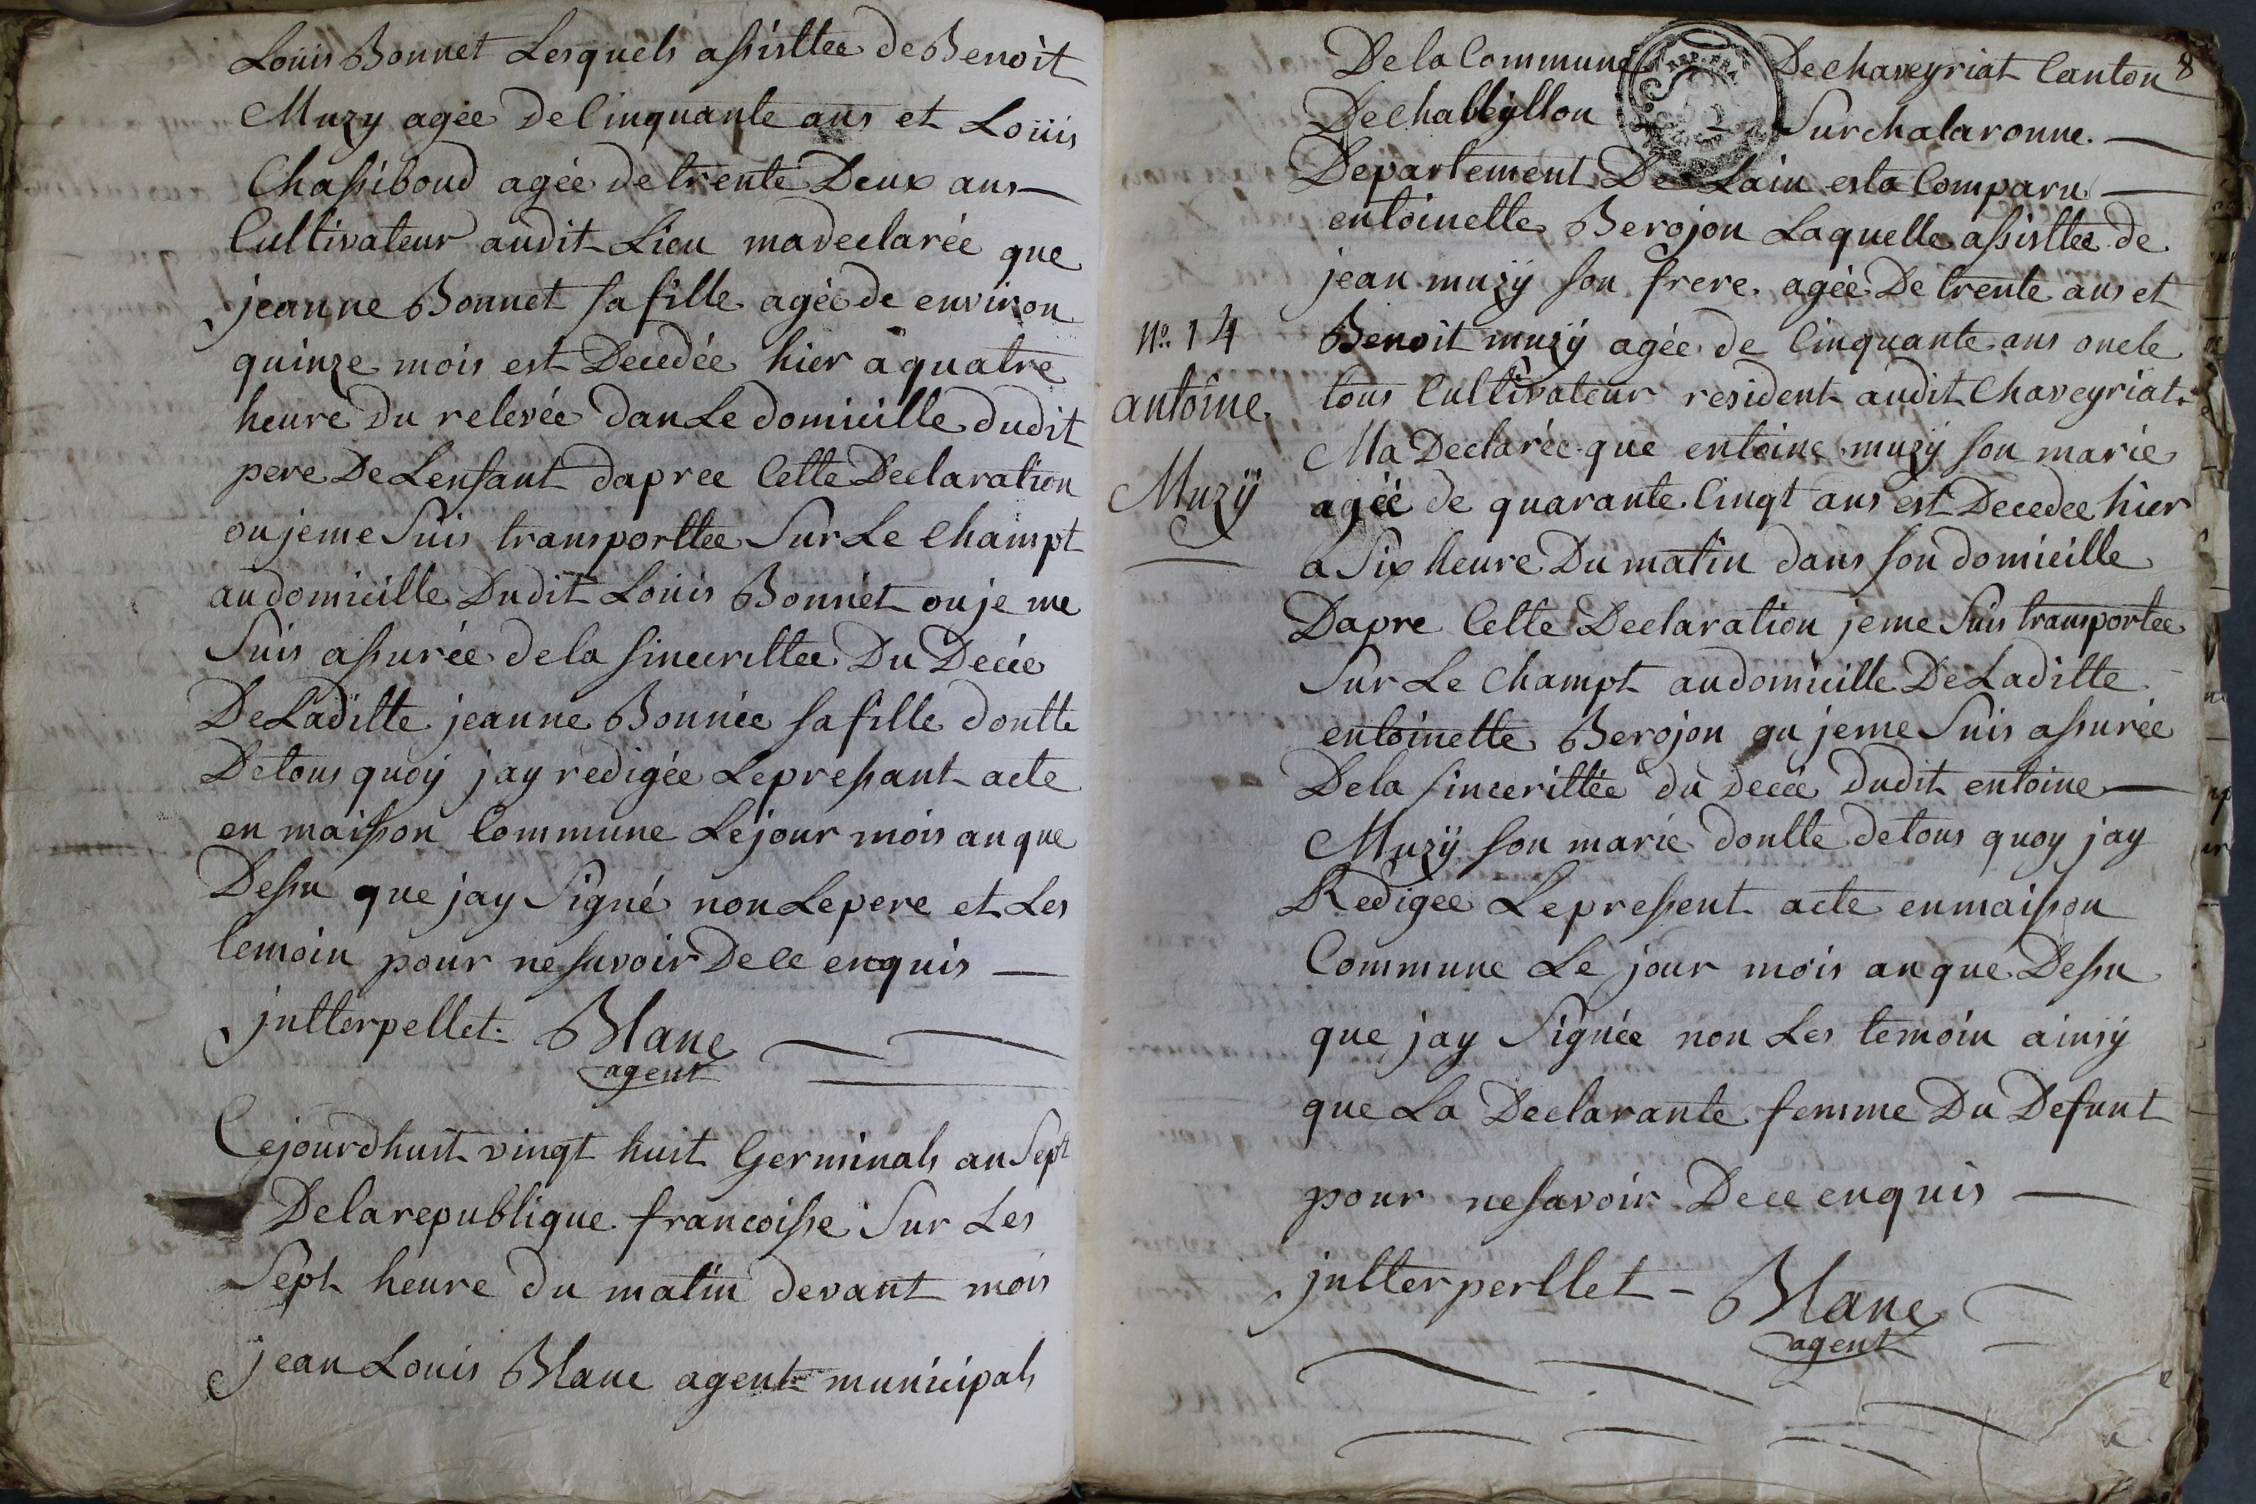 Louis Bonnet Lesquels assisttee de Benoit
Muzy agée De Cinquante ans et Louis
Chassiboud agée de trente Deux ans
Cultivateur audit Lieu madeclarée que
jeanne Bonnet sa fille agée de environ
quinze mois est Decedée hier a quatre
heure Du relevée dan Le domicille dudit
pere De Lensant dapree Cette Declaration
ou jeme Suis transporttee Sur Le Champt
au domicille Dudit Louis Bonnet ou je me
Suis assurée de la sincerittee Du Decée
De Laditte jeanne Bonnée sa fille dontte
De tous quoy jay redigée Le pressant acte
en maisson Commune Le jour mois an que
Dessu que jay Signé non Le pere et Les
temoin pour ne savoir De ce enquis
jntterpellet. Blanc
agent
Cejourdhuit vingt huit Germinals an Sept
De la republique francoisse Sur Les
Sept heure du matin devant mois
jean Louis Blanc agent municipals
8
De la Commune De Chaveyriat Canton
De Chatteyllon Sur chalaronne.
Departement De Lain est a Comparu
entoinette Berojon Laquelle assisttee de
jean muzÿ son frere agée De trente ans et
No. 14
Benoit muzÿ agée de Cinquante ans oncle
antoine
tous Cultivateur resident audit Chaveyriat.
Ma Declarée que entoine muzÿ son marie
Muzÿ
agéé de quarante Cinqt ans est Decedee hier
a Six heure Du matin dans son domicille
Dapre Cette Declaration jeme Suis transportee
Sur Le Champt au domicille De Laditte
entoinette Berojon ou jeme Suis assurée
De la sincerittée du decée dudit entoine
Muzÿ son marie dontte de tous quoy jay
Redigee Le pressent acte en maisson
Commune Le jour mois an que Dessu
que jay Signée non Les temoin ainsÿ
que La Declarante femme Du Defunt
pour ne savoir De ce enquis
jntterperllet - Blanc
agent